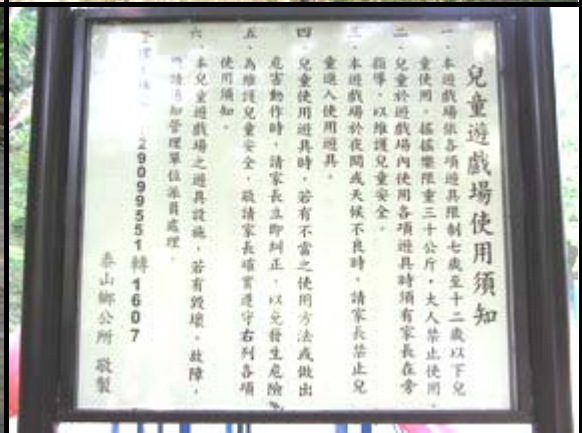 兒童遊戲場使用須知
一、本遊戲場依各項遊具限制七歲至十二歲以下兒
童使用。搖搖樂限重三十公斤,大人禁止使用。
二、兒童於遊戲場內使用各項遊具時須有家長在旁
指導,以維護兒童安全。
三、本遊戲場於夜間或天候不良時,請家長禁止兒
童進入使用遊具。
四、兒童使用遊具時,若有不當之使用方法或做出
危害動作時,請家長立即糾正,以免發生危險。
五、為維護兒童安全,敬請家長確實遵守右列各項
使用須知。
六、本兒童遊戲場之遊具設施,若有毀壞、故障,
請通知管理單位派員處理。
29099551轉1607
泰山鄉公所 敬製